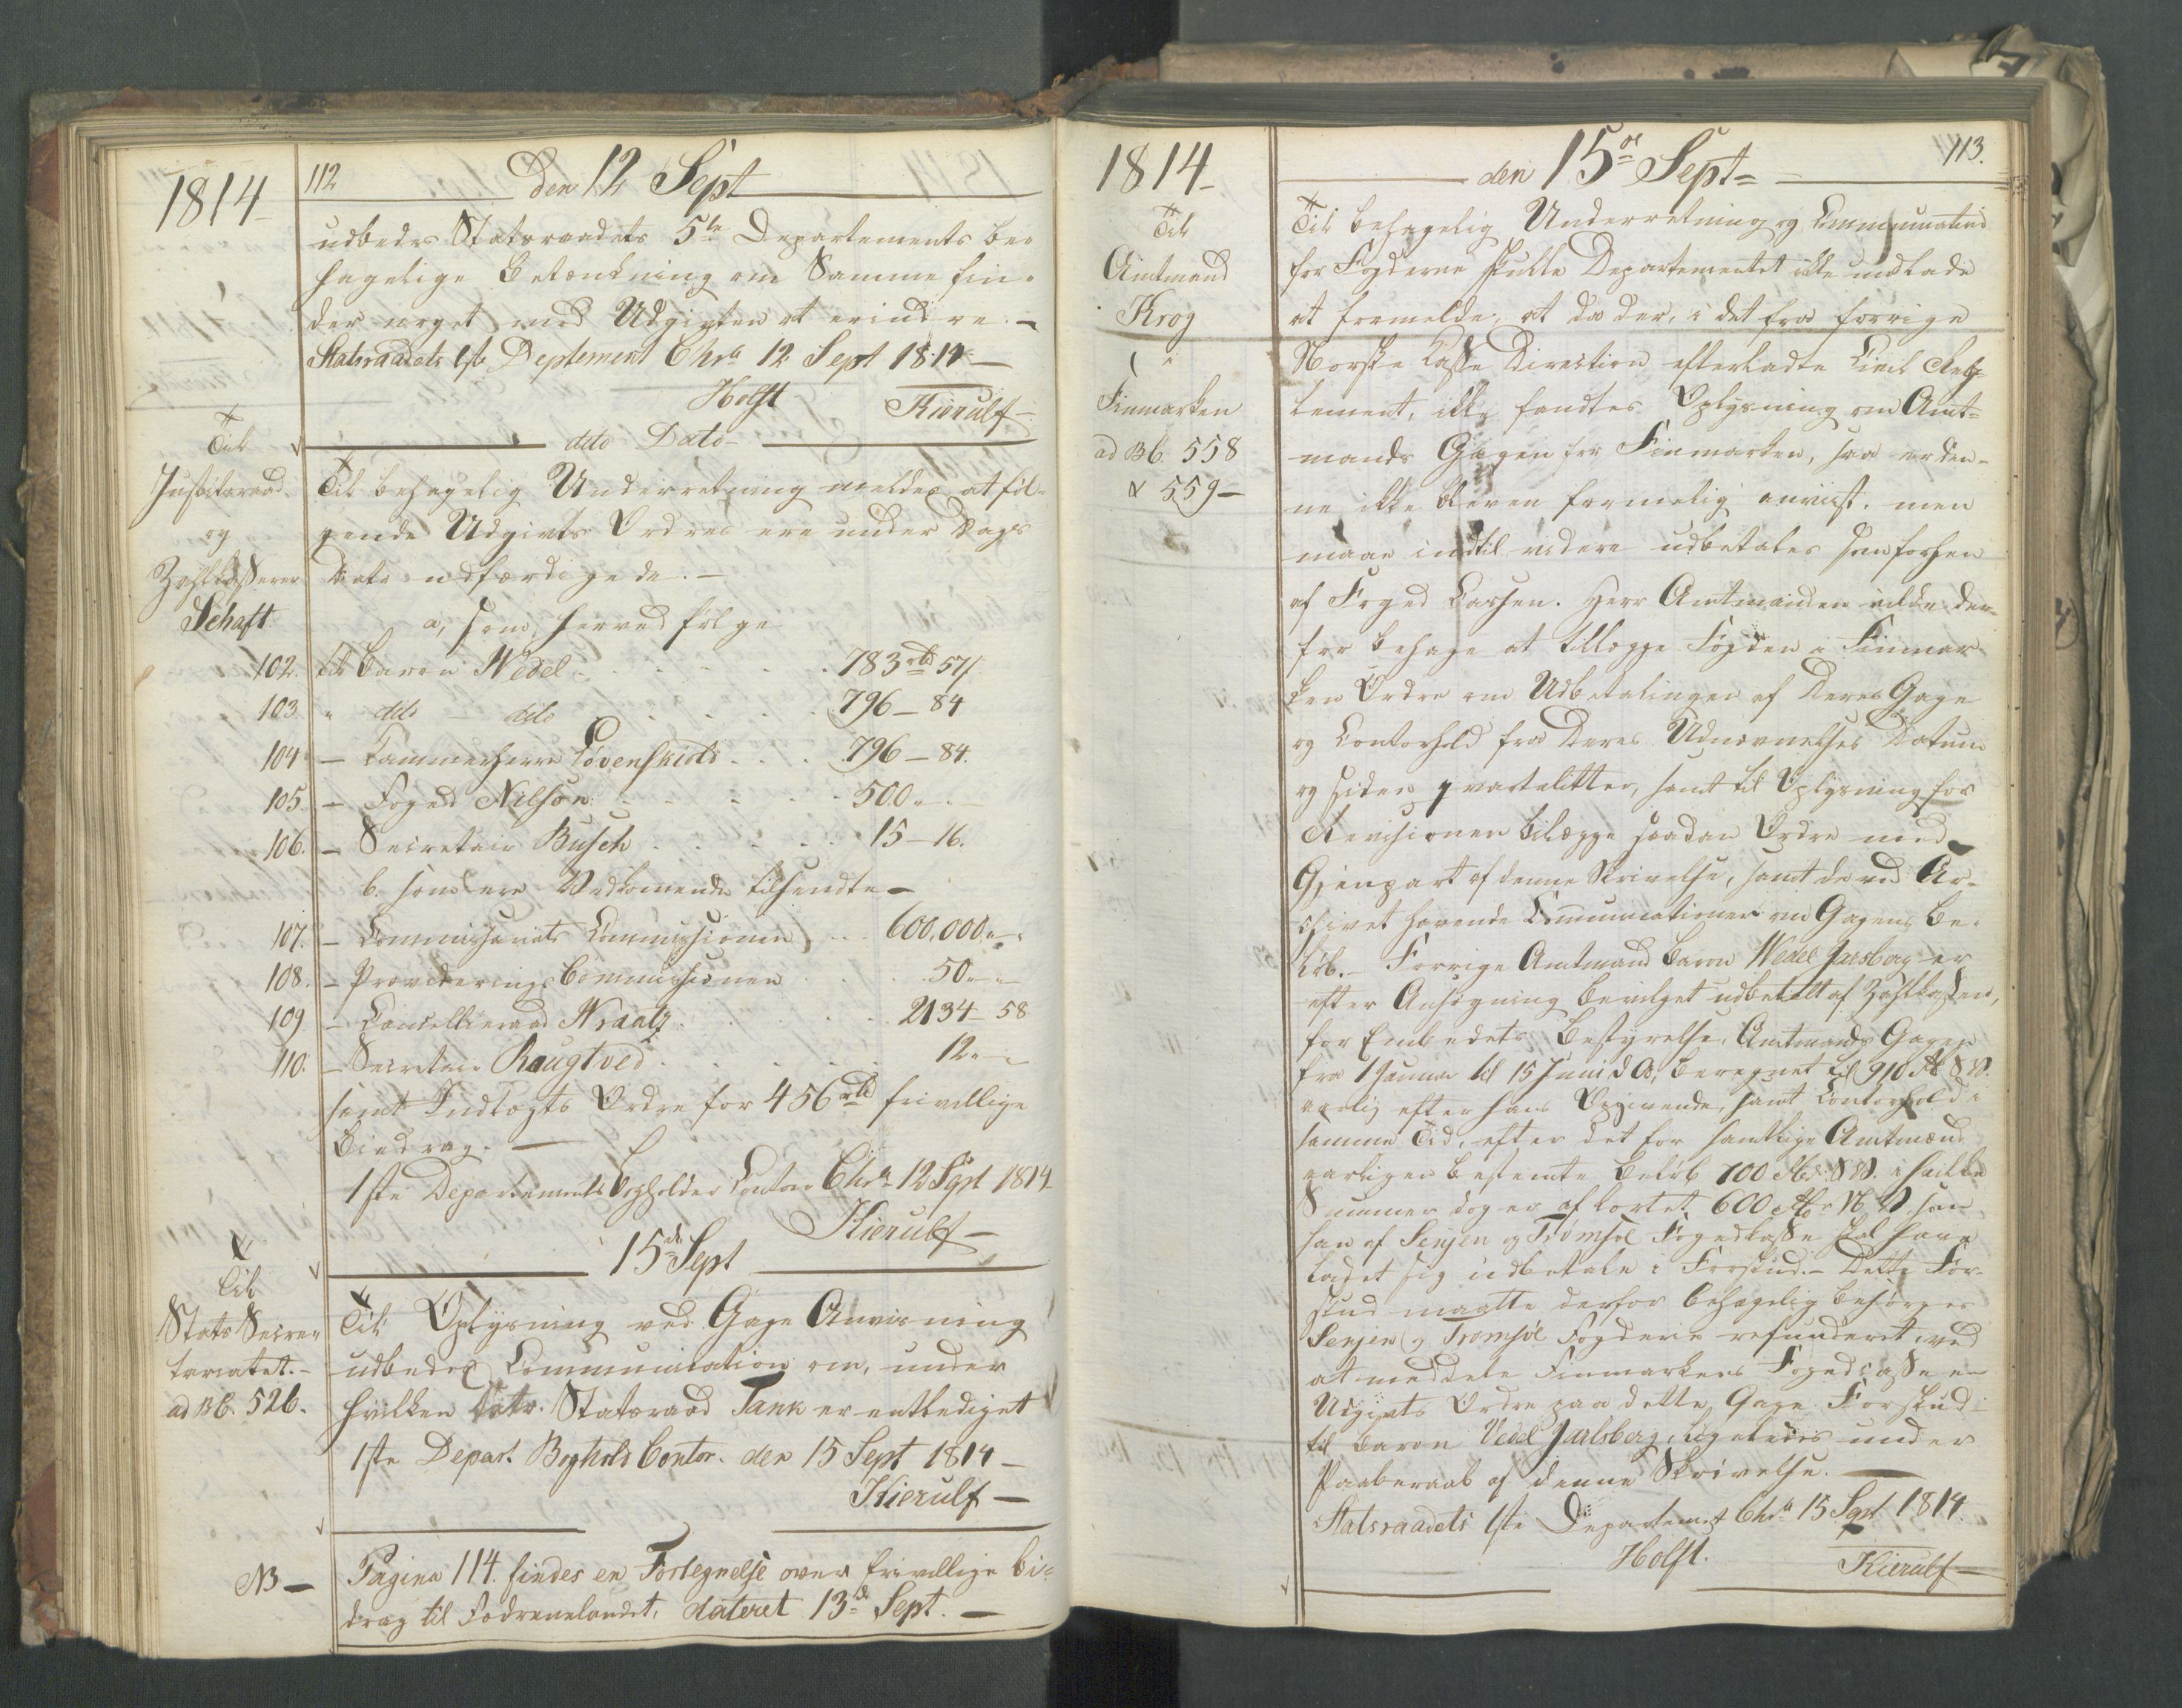 1814
112
den 12 Sept
udbedes Statsraadets 5te Departements be-
hagelige Betænkning om Samme fin-
der noget mod Udgivten at erindre. -
Statsraadets 1ste Deptement Chra 12 Sept 1814 -
Holst
Kierulf -
dito Dato -
Til
Justitsraad
og
Zahlkasserer
Schaft
Til behagelig Underretning meldes at føl-
gende Udgivts Ordres ere under Dags
Dato udfærdigede. -
a, som herved følge
102. til Baron Wedel 783 rbd 57 s
103. " dito - dito 796 - 84
104 - Kammerherre Løvenskiold 796 - 84.
105. - Foged Nilson 500 " -
106. - Secretair Busch 15 - 16.
b. som ere Vedkomende tilsendte -
107. - Commissariats Commissionen 600,000. " -
108. - Provideringscommissionen 50 " -
109 - Cancellieraad Wraatz 2134 - 58
110. - Secretair Raugtved 12 " -
samt Indtægts Ordre for 456 rbd frivillige
Biedrag. -
1ste Departements Bogholder Contoir Chra 12 Sept 1814
Kierulf -
15de Sept
Til
Stats Secre-
tariatet. -
ad Bb. 526.
Til Oplysning ved Gage Anvisning
udbedes Communication om, under
hvilken Dato Statsraad Tank er entlediget
1ste Depart. Boghols Contor. den 15 Sept 1814 -
Kierulf -
NB -
Pagina 114. findes en Fortegnelse over frivillige bi-
drag til Fædrenelandet, dateret 13de Sept. -
1814
113.
den 15de Sept
Til
Amtmand
Krog
i
Finmarken
ad Bb. 558
& 559 -
Til behagelig Underretning og Communication
for Fogderne skulle Departementet ikke undlade
at formelde, at da der, i det fra forrige
Norske Casse Direction efterladte Civil Reg-
lement, ikke fandtes Oplysning om Amt-
mands Gagen for Finmarken, saa er den-
ne ikke bleven formelig anviist, men
maae indtil videre udbetales som forhen
af Foged Cassen. Herr Amtmanden vilde der-
for behage at tillægge Fogden i Finmar-
ken Ordre om Udbetalingen af Deres Gage
og Contorhold fra Deres Udnævnelses Datum
og siden qvartaliter, samt til Oplysning for
Revisionen bilægge saadan Ordre med
Gjenpart af denne Skrivelse, samt de ved Ar-
chivet havende Communicationer om Gagens Be-
løb. - Forrige Amtmand Baron Wedel Jarlsberg er
efter Ansøgning bevilget udbetalt af Zahlkassen,
for Embedets Bestyrelse, Amtmands Gagen
fra 1 Januar til 15 Juni d. A, beregnet til 910 S. V.
aarlig efter hans Opgivende, samt Contorhold i
samme Tid, efter det for samtlige Amtmænd
aarligen bestemte Beløb 700 S. V. i hvilke
Summer dog er afkortet 600 N. V. som
han af Senjen og Tromsøe Fogedkasse skal have
ladet sig udbetale i Forskud. - Dette For-
skud maatte derfor behagelig besørges
Senjen og Tromsøe Fogderie refunderet, ved
at meddele Finmarkens Fogedcasse en
Udgivts Ordre paa dette Gage Forskud
til Baron Vedel Jarlsberg, ligeledes under
Paaberaab af denne Skrivelse. -
Statsraadets 1ste Departemet Chra 15 Sept 1814.
Holst.
Kierulf -